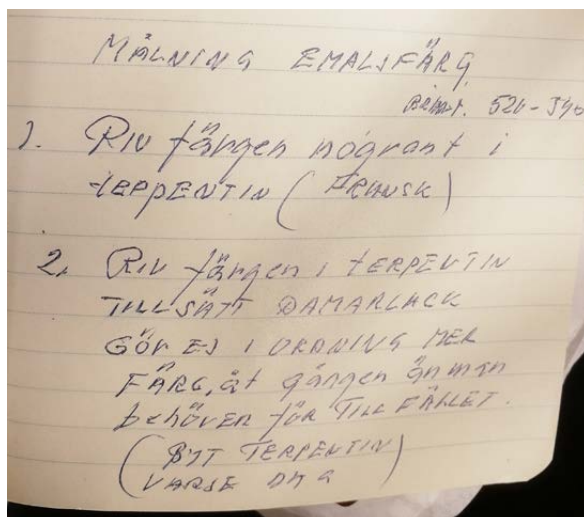 MÅLNING EMALJFÄRG
Bränt. 520-540
1. RIV färgen nógrant i
teppENTIN (FRANSK)
2. RIV färgen i tERPENTIN
TILLSÄTT DAMARLACK
GÖR EJ I ORDNING MER
FÄRG, åt gången än man
behövER för TILLFÄLLET.
(BYT TERPENTIN)
VARJE DAG